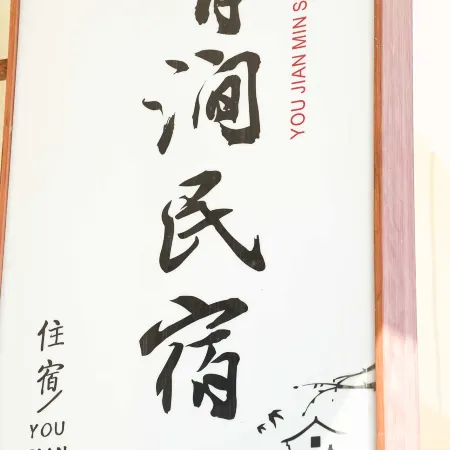 涧民宿
YOU JIAN MIN S
住宿/YOU